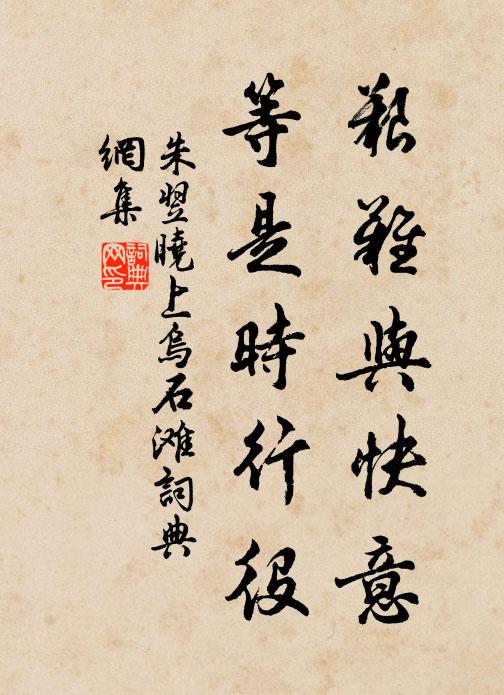 艱難與快意
等是時行役
朱翌曉上烏石滩詞典
網集
詞典
网印